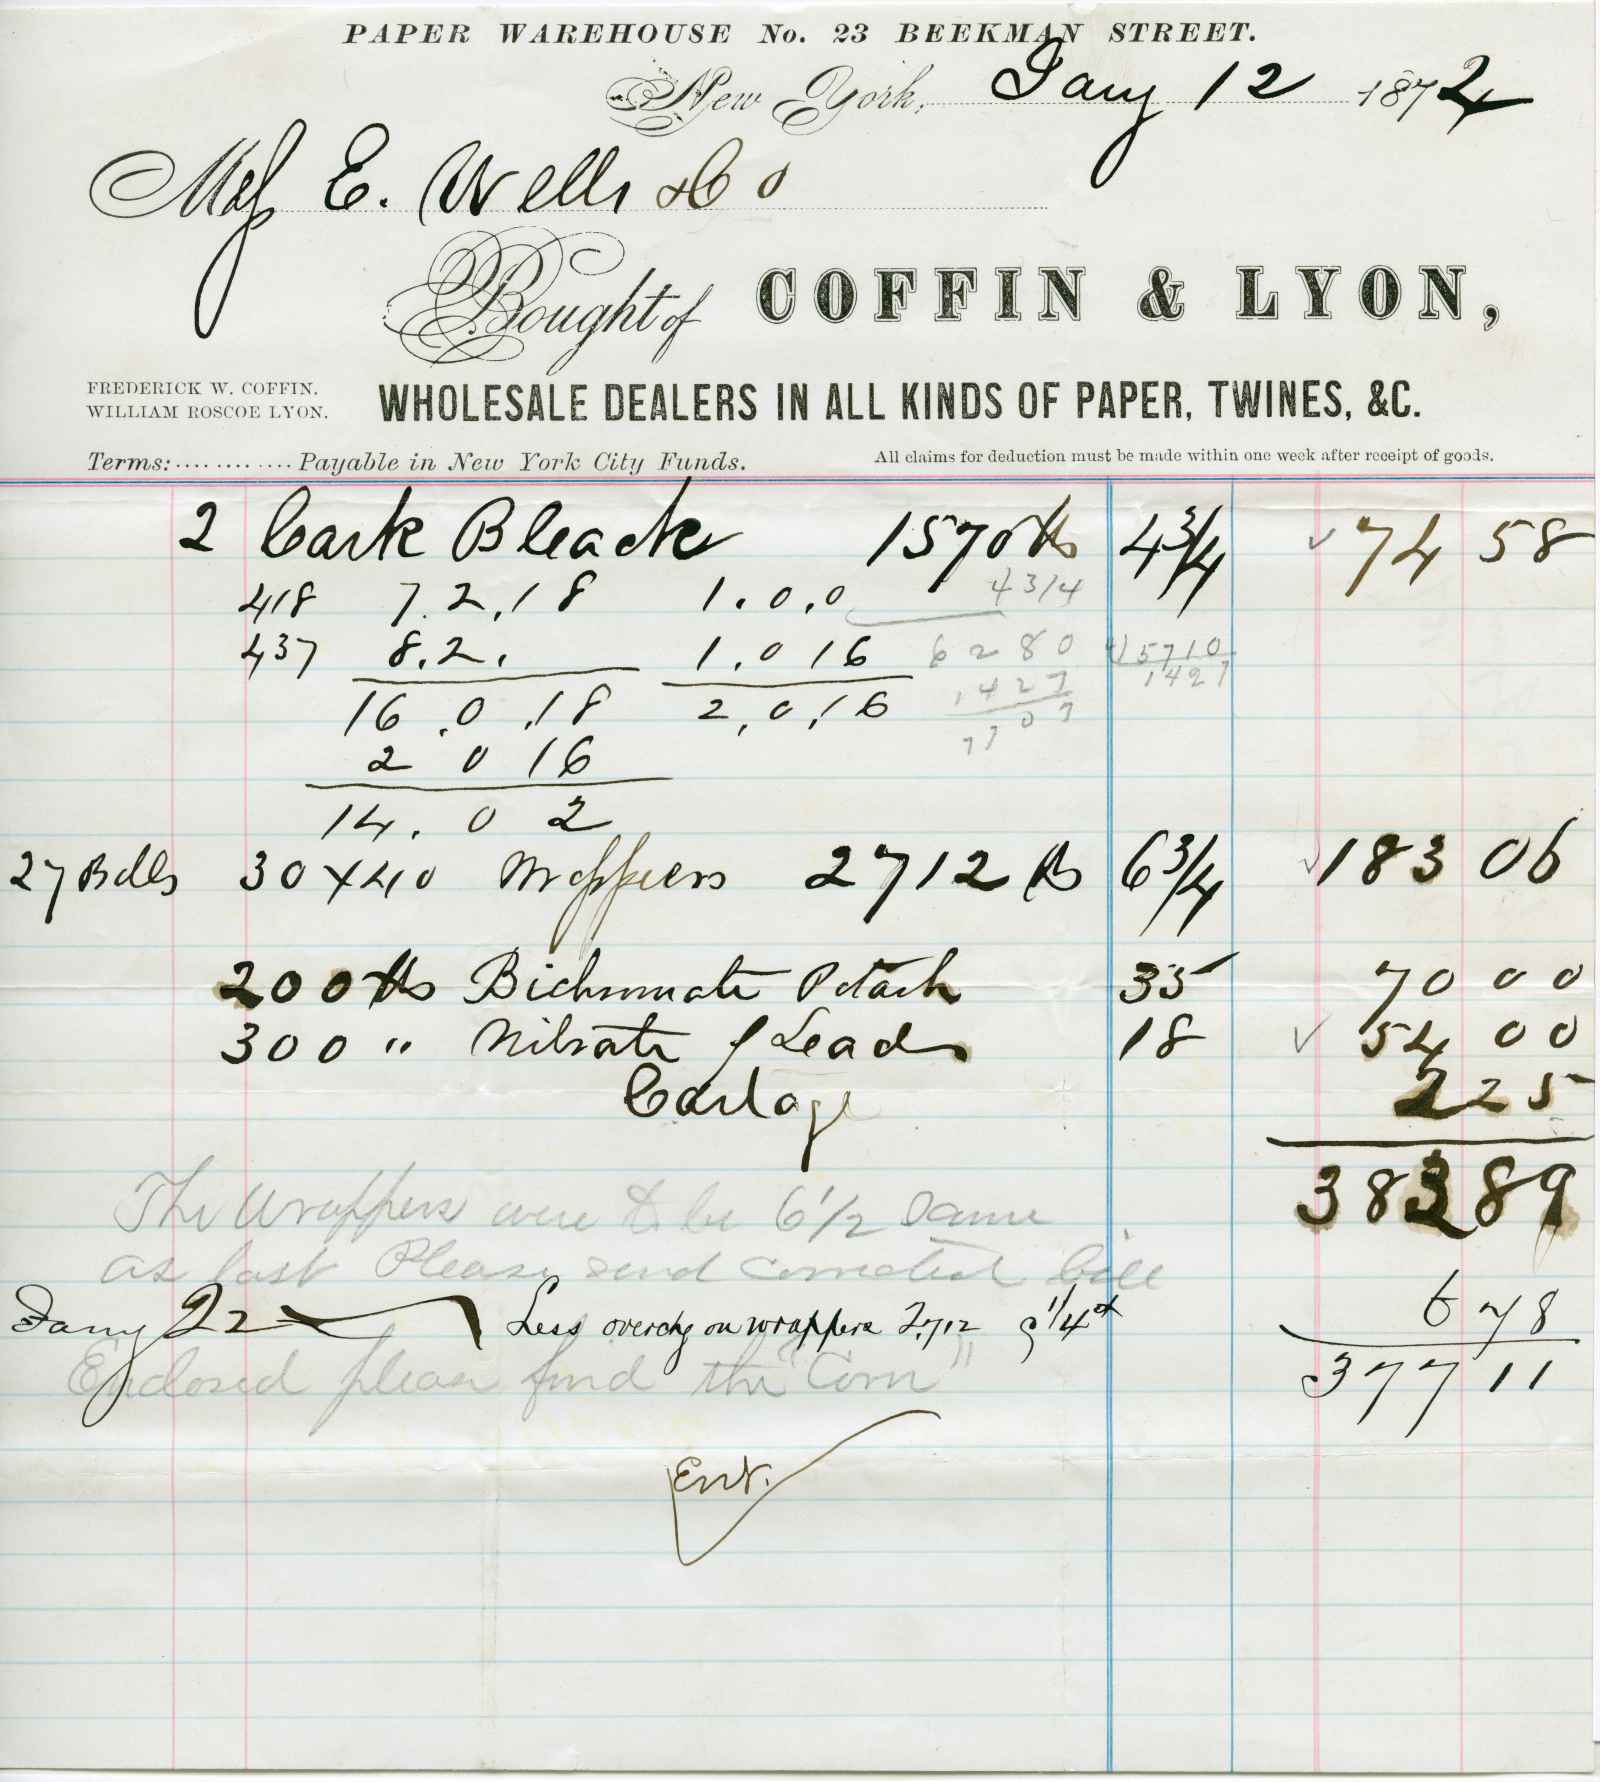 PAPER WAREHOUSE No. 23 BEEKMAN STREET.
New York, Jany 12 1874
Mess E. Wells & Co
Bought of COFFIN & LYON,
FREDERICK W. COFFIN.
WILLIAM ROSCOE LYON.
WHOLESALE DEALERS IN ALL KINDS OF PAPER, TWINES, &C.
Terms: .... ...... .... Payable in New York City Funds.
All claims for deduction must be made within one week after receipt of goods.
2 Cask Bleach 1570 lbs 4 3/4 74 58
418 7.2.18 1.0.0 4 3/4
437 8.2. 1.0 16 6280 4)5710
1427 1427
16.0.18 2.0.16 7707
2 0 16
14.0 2
27 Bdls 30 x 40 Wrappers 2712 lbs 6 3/4 183 06
200 lbs Bichromate Potash 35 70 00
300 " Nitrate of Lead 18 54 00
Cartage 2 25
383 89
The Wrappers were to be 6 1/2 same
as last Please send corrected bill
Jany 22 Less overchg on wrappers 2712 @ 1/4 ct 6 78
377 11
Enclosed please find the "Corn"
Ent.